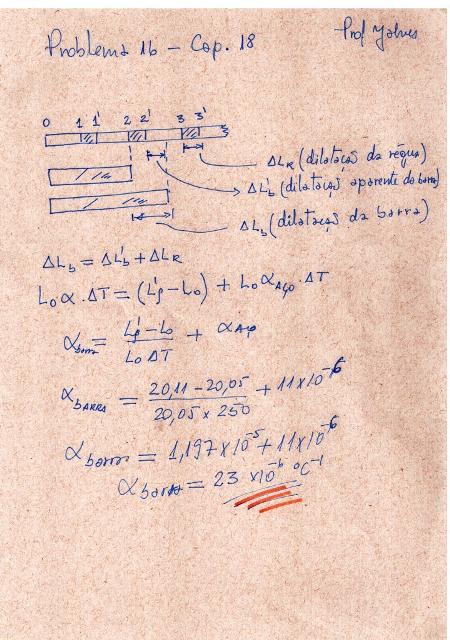 Problema 16 - Cap. 18
Prof
0 1 1' 2 2' 3 3'
ΔL_R (dilatação da régua)
ΔL'_b (dilatação aparente da barra)
ΔL_b (dilatação da barra)
ΔL_b = ΔL'_b + ΔL_R
L₀α.ΔT = (L'_f - L₀) + L₀α_Aço ΔT
α_barra = (L'_f - L₀)/(L₀ ΔT) + α_Aço
α_BARRA = (20,11 - 20,05)/(20,05 x 250) + 11x10⁻⁶
α_barra = 1,197x10⁻⁵ + 11x10⁻⁶
α_barra = 23 x10⁻⁶ °C⁻¹